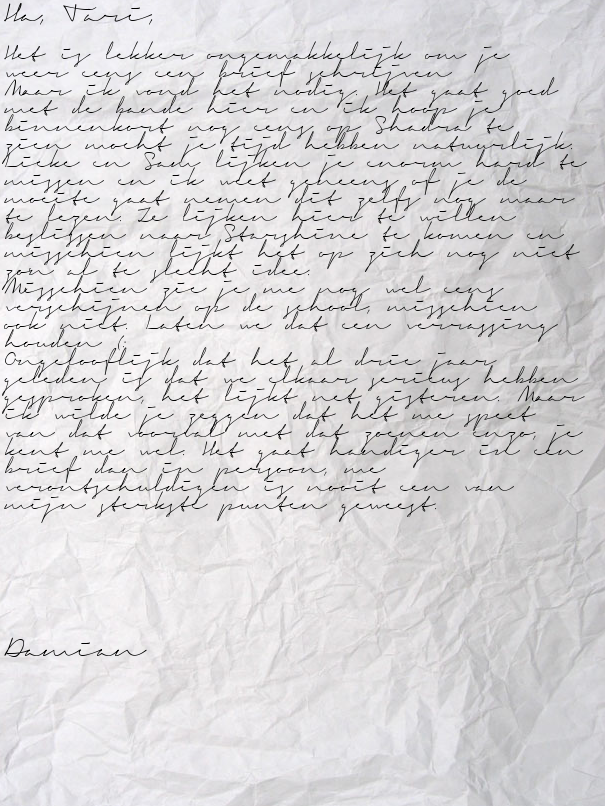 Ha, Tari,
Het is lekker ongemakkelijk om je
weer eens een brief schrijven
Maar ik vond het nodig. Het gaat goed
met de bende hier en ik hoop je
binnenkort nog eens op Shadra te
zien mocht je tijd hebben natuurlijk.
Lieke en Sady lijken je enorm hard te
missen en ik weet geneens of je de
moeite gaat nemen dit zelfs nog maar
te lezen. Ze lijken hier te willen
beslissen naar Starshine te komen en
misschien lijkt het op zich nog niet
zon al te slecht idee.
Misschien zie je me nog wel eens
verschijnen op de school, misschien
ook niet. Laten we dat een verrassing
houden (;
Ongelooflijk dat het al drie jaar
geleden is dat we elkaar serieus hebben
gesproken, het lijkt net gisteren. Maar
ik wilde je zeggen dat het me speet
van dat voorval met dat zoenen enzo, je
kent me wel. Het gaat handiger in een
brief dan in persoon, me
verontschuldigen is nooit een van
mijn sterkste punten geweest.
Damian